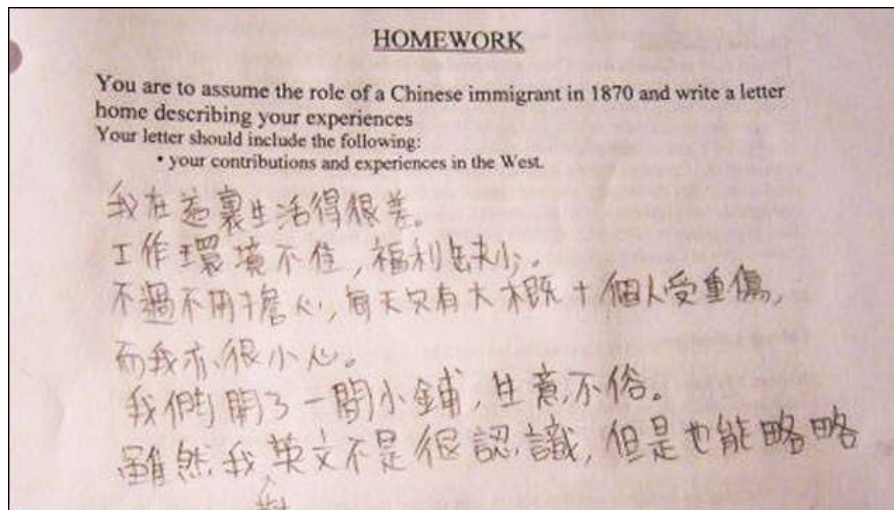 HOMEWORK
You are to assume the role of a Chinese immigrant in 1870 and write a letter
home describing your experiences
Your letter should include the following:
• your contributions and experiences in the West.
我在這裏生活得很差。
工作環境不佳，福利缺少。
不過不用擔心，每天只有大概十個人受重傷，
而我亦很小心。
我們開了一間小鋪，生意不俗。
雖然我英文不是很認識，但是也能略略
對